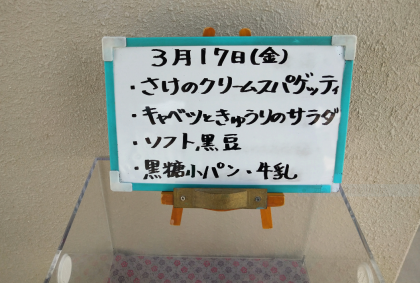 3月17日(金)
・さけのクリームスパゲッティ
・キャベツときゅうりのサラダ
・ソフト黒豆
・黒糖小パン・牛乳